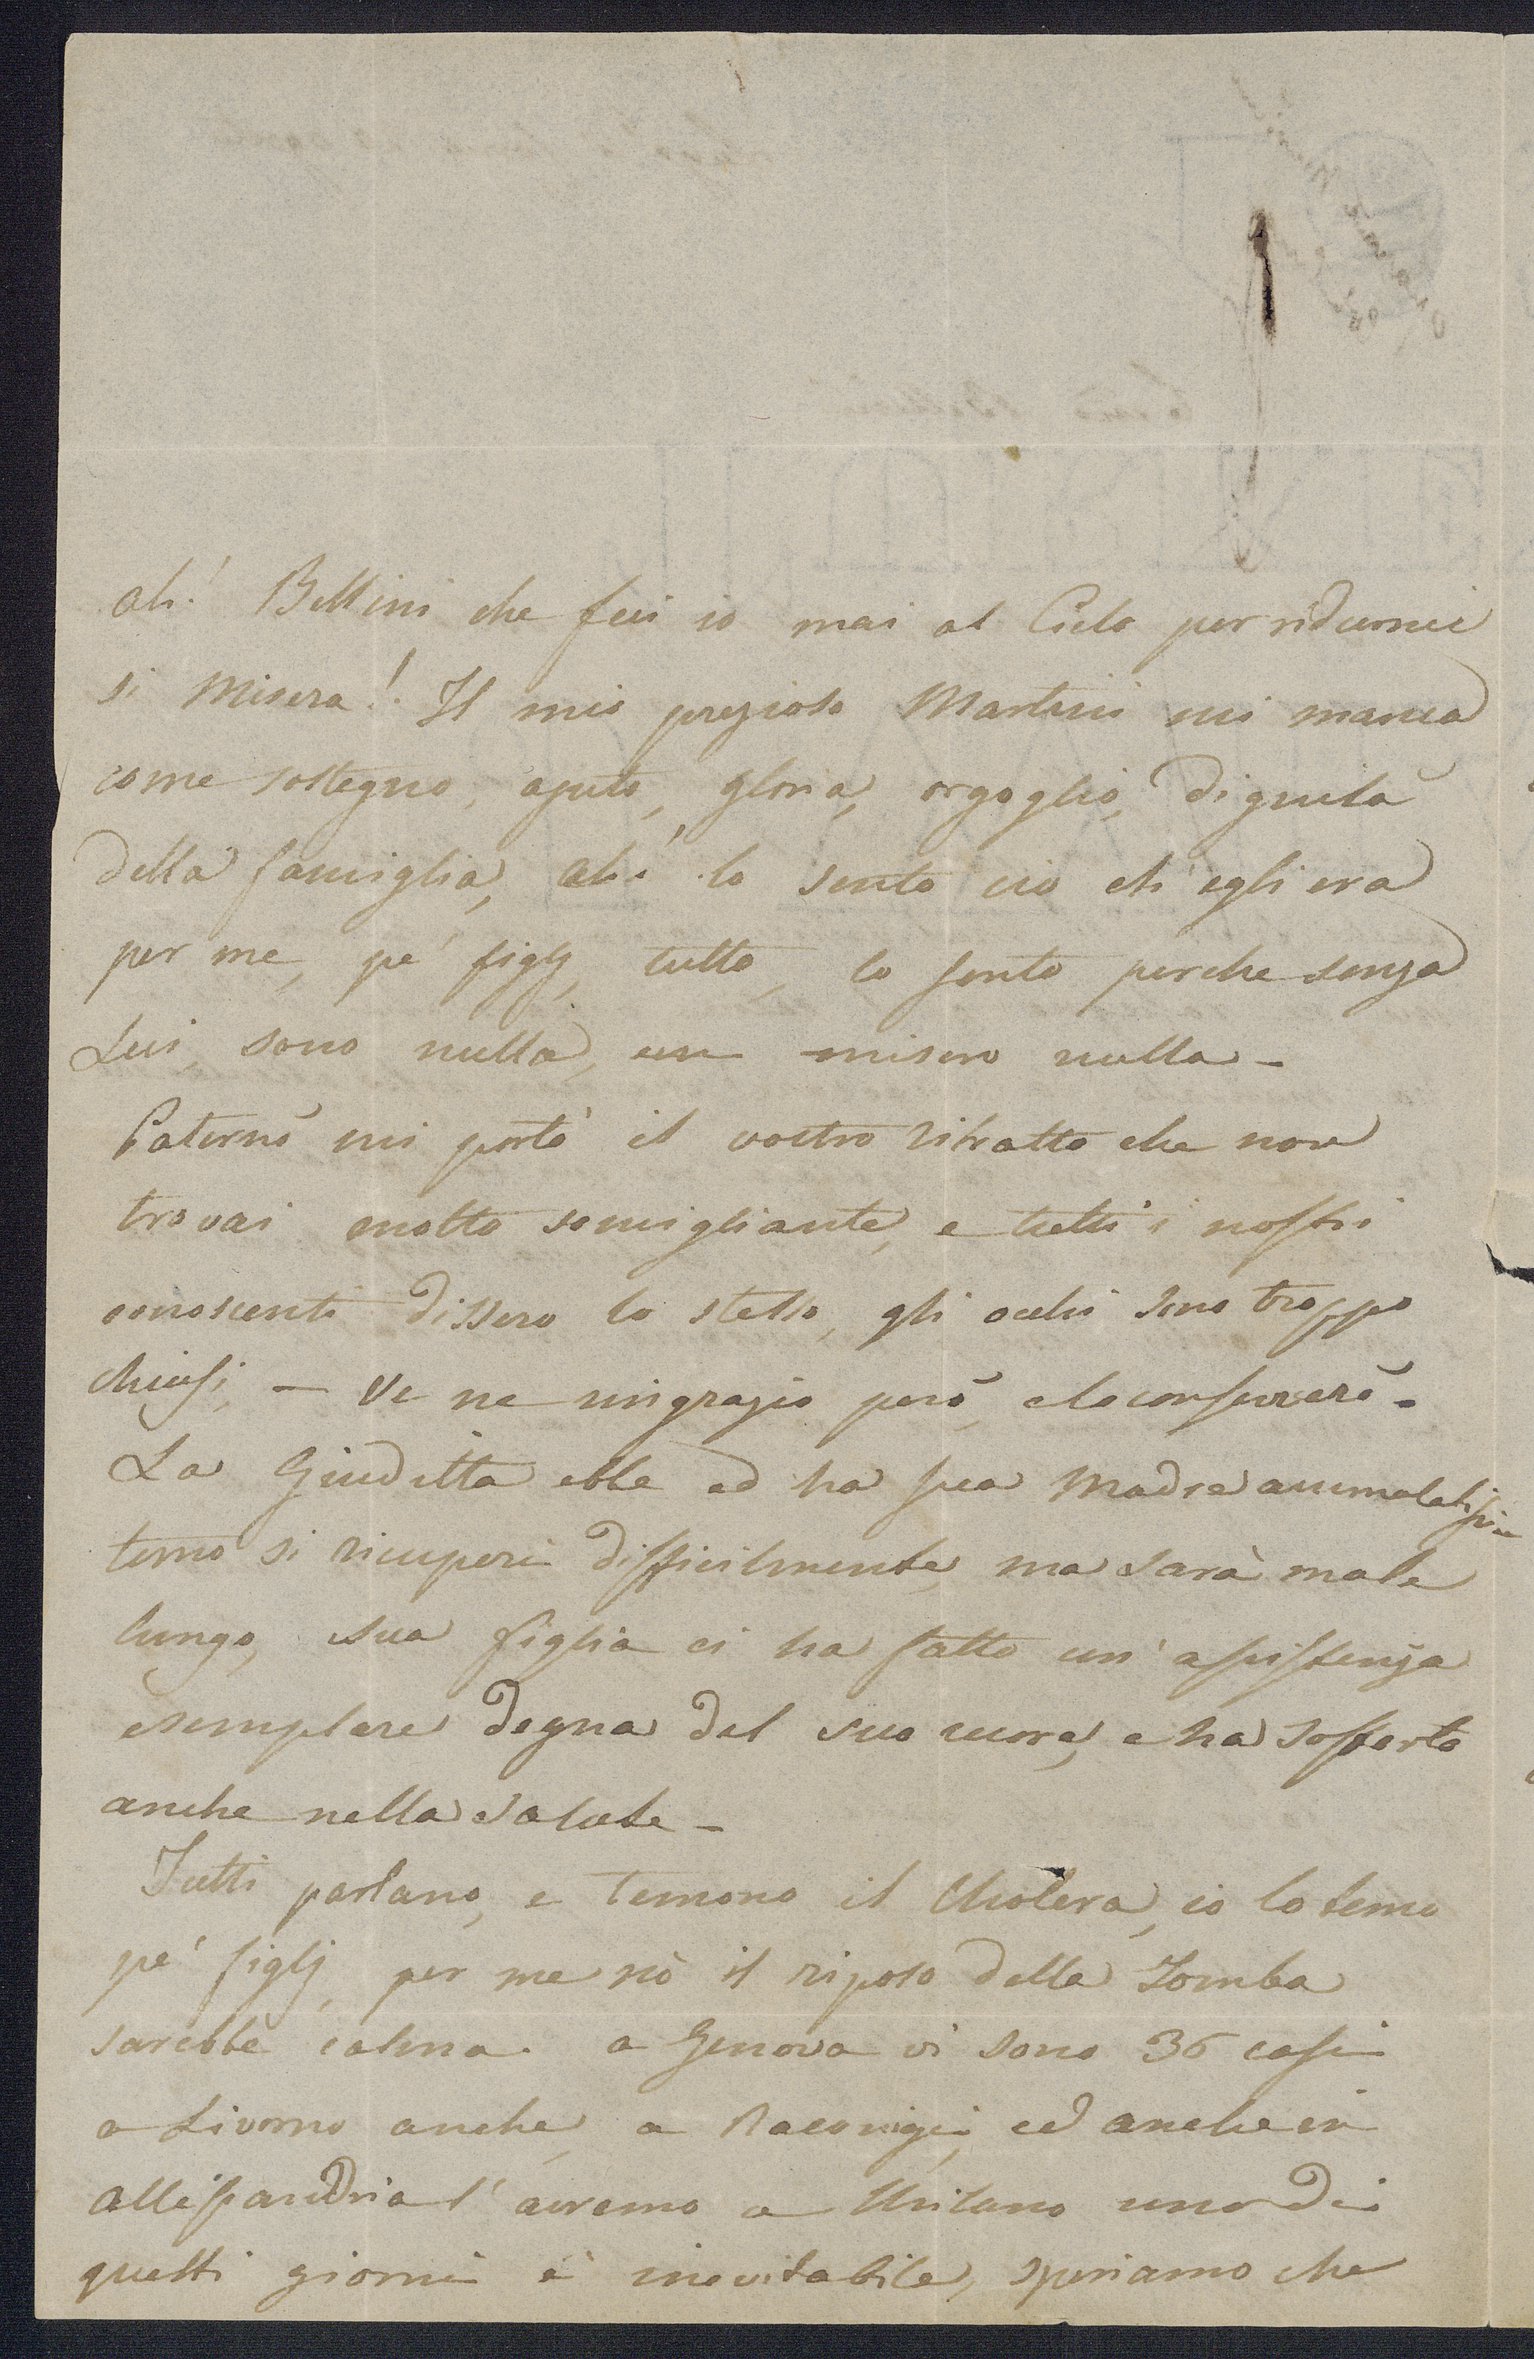 ah! Bellini che feci io mai al Cielo per ridurmi
si misera! Il mio prezioso Martini mi manca
come sostegno, ajuto, gloria, orgoglio, dignità
della famiglia, ah! lo sento ciò ch'egli era
per me, pe' figlj, tutto, lo sento perche senza
Lui, sono nulla, un misero nulla -
Paternò mi portò il vostro ritratto che non
trovai molto somigliante, e tutti i nostri
conoscenti dissero lo stesso, gli occhi sono troppo
chiusi, — Ve ne ringrazio però, e lo conserverò -
La Giuditta ebbe ed ha sua Madre
temo si ricuperi difficilmente, ma sarà male
lungo, sua figlia ci ha fatto un'assistenza
esemplare degna del suo cuore, e ha sofferto
anche nella salute -
Tutti parlano, e temono il Cholera, io lo temo
pe' figlj, per me nò il riposo della Tomba
sarebbe calma. a Genova vi sono 36 casi
a Livorno anche, a Raconigi, ed anche in
Allessandria l'avremo a Milano uno di
questi giorni è inevitabile, speriamo che